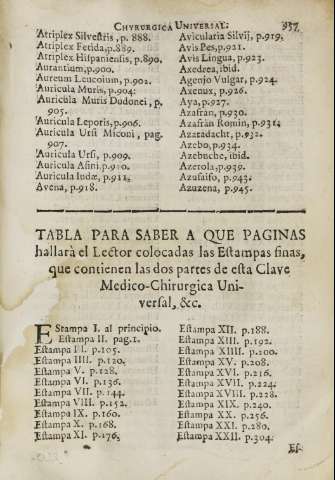 CHYRURGICA UNIVERSAL. 957
Atriplex Silvestris, p. 888.
Atriplex Fetida, p.889.
Atriplex Hispaniensis, p.890.
Aurantium, p.900.
Aureum Leucoium, p.902.
Auricula Muris, p.904:
Auricula Muris Dudonei, p.
905.
Auricula Leporis, p.906.
Auricula Ursi Miconi, pag.
907.
Auricula Ursi, p.909.
Auricula Asini, p.910.
Auricula Iudæ, p.911.
Avena, p.918.
Avicularia Silvij, p.919.
Avis Pes, p.921.
Avis Lingua, p.923.
Axedrea, ibid.
Agenjo Vulgar, p.924.
Axenus, p.926.
Aya, p.927.
Azafran, p.930.
Azafràn Romin, p.931.
Azaradacht, p.932.
Azebo, p.934.
Azebuche, ibid.
Azerola, p.939.
Azufaifo, p.943.
Azuzena, p.945.
TABLA PARA SABER A QUE PAGINAS
hallarà el Lector colocadas las Estampas finas,
que contienen las dos partes de esta Clave
Medico-Chirurgica Uni-
versal, &c.
EStampa I. al principio.
Estampa II. pag.1.
Estampa III. p.105.
Estampa IIII. p.120.
Estampa V. p.128.
Estampa VI. p.136.
Estampa VII. p.144.
Estampa VIII. p.152.
Estampa IX. p.160.
Estampa X. p.168.
Estampa XI. p.176.
Estampa XII. p.188.
Estampa XIII. p.192.
Estampa XIIII. p.200.
Estampa XV. p.208.
Estampa XVI. p.216.
Estampa XVII. p.224.
Estampa XVIII. p.228.
Estampa XIX. p.240.
Estampa XX. p.256.
Estampa XXI. p.280.
Estampa XXII. p.304.
Es-